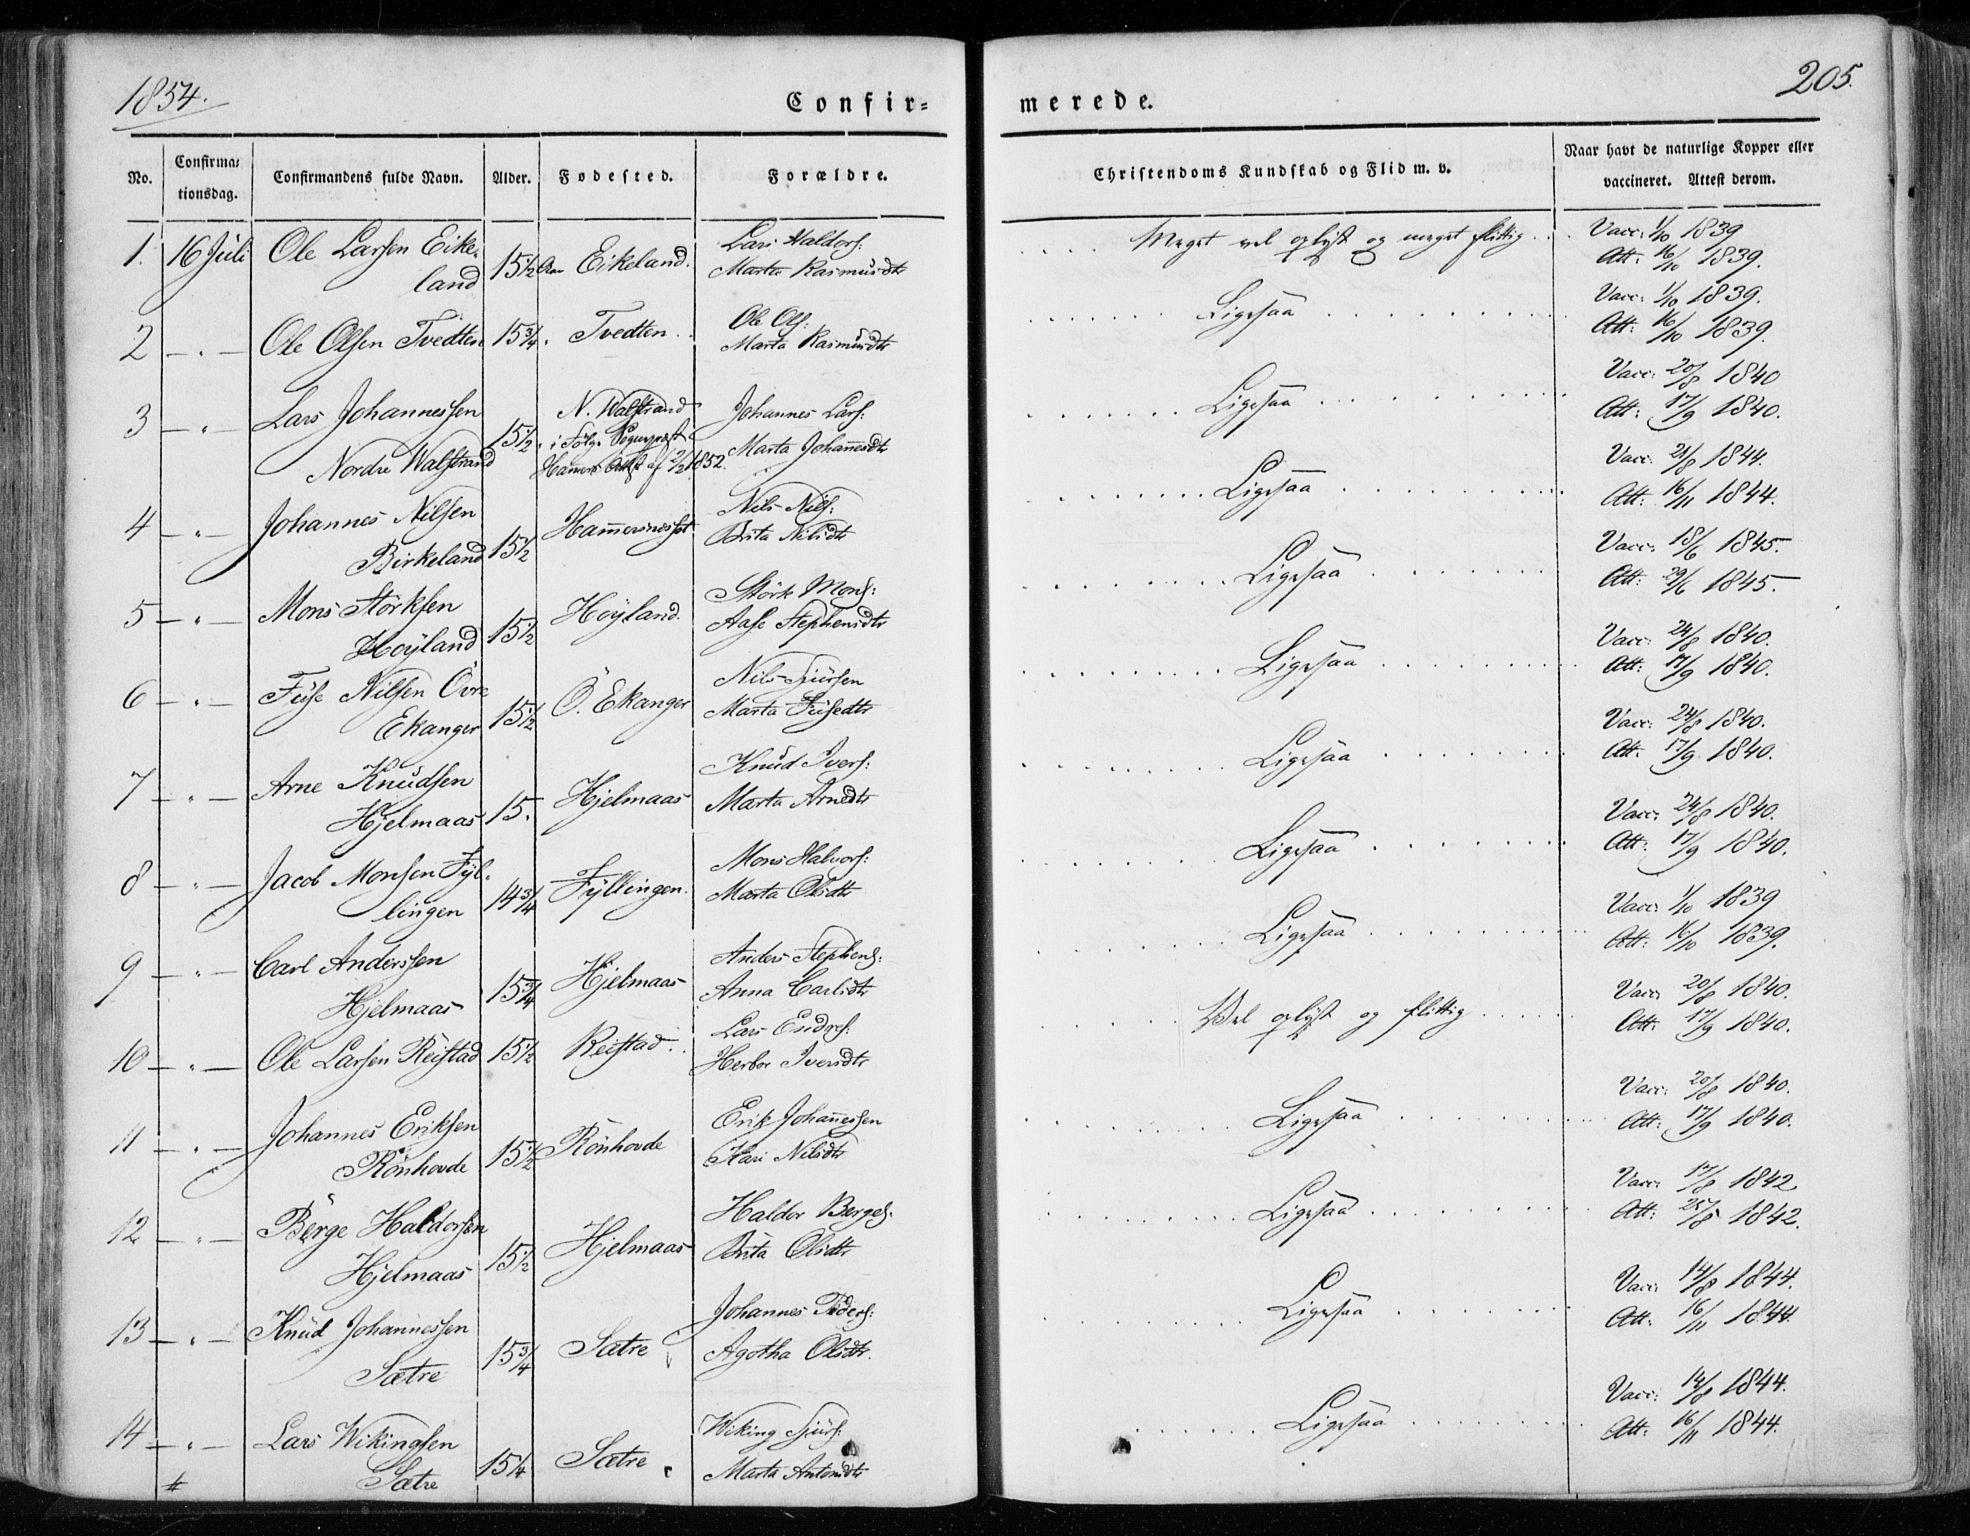 1854.
205.
Confir=
merede.
No.
Confirma=
tionsdag.
Confirmandens fulde Navn.
Alder.
Fødested.
Forældre.
Christendoms Kundskab og Flid m. v.
Naar havt de naturlige Kopper eller
vaccineret. Attest derom.
1. 16 Juli Ole Larsen Eike- 15 1/2 Aar Eikeland. Lars Haldors: Meget vel oplyst og meget flittig Vacc: 1/10 1839
land Marta Rasmusdtr Att: 16/10 1839.
2 — " — Ole Olsen Tvedten 15 3/4. Tvedten Ole Ols: Ligesaa Vacc: 1/10 1839.
Marta Rasmusdtr Att: 16/10 1839.
3 — " — Lars Johannessen 15 1/2. N. Walstrand Johannes Lars: Ligesaa Vacc: 20/8 1840
Nordre Walstrand i Følge Sognepræst Marta Johañesdtr Att: 17/9 1840.
Hamers Attest af 2/2 1852.
4 — " — Johannes Nilsen 15 1/2 Ham̄ersnesset Nils Nils: Ligesaa Vacc: 21/8 1844.
Birkeland Brita Nilsdtr Att: 16/11 1844.
5 — " — Mons Størksen 15 1/2 Høyland. Størk Mons: Ligesaa Vacc: 18/6 1845.
Høyland Aase Stephensdtr Att: 29/6 1845.
6 — " — Fuse Nilsen Övre 15 1/2 Ö. Ekanger Nils Sjursen Ligesaa Vacc: 24/8 1840.
Ekanger Marta Fusedtr Att: 17/9 1840.
7 — " — Arne Knudsen 15. Hjelmaas Knud Ivers: Ligesaa Vacc: 24/8 1840.
Hjelmaas Marta Arnedtr Att: 17/9 1840.
8 — " — Jacob Monsen Fyl- 14 3/4 Fyllingen. Mons Halvors: Ligesaa Vacc: 24/8 1840.
lingen Marta Olsdtr Att: 17/9 1840.
9 — " — Carl Anderssen 15 3/4 Hjelmaas Anders Stephens: Ligesaa Vacc: 1/10 1839
Hjelmaas Anna Carlsdtr Att: 16/10 1839.
10 — " — Ole Larsen Reistad 15 1/2 Reistad Lars Endres: Vel oplyst og flittig Vacc: 20/8 1840.
Herbor Iversdtr Att: 17/9 1840.
11 — " — Johannes Eriksen 15 1/2 Rönhovde Erik Johañessen Ligesaa Vacc: 20/8 1840.
Rönhovde Kari Nilsdtr Att: 17/9 1840.
12 — " — Börge Haldorsen 15 1/2 Hjelmaas Haldor Berges: Ligesaa Vacc: 17/8 1842
Hjelmaas Brita Olsdtr Att: 25/8 1842.
13 — " — Knud Johannessen 15 3/4 Sætre Johannes Peders: Ligesaa Vacc: 14/8 1844.
Sætre Agotha Olsdtr. Att: 16/11 1844.
14 — " — Lars Wikingsen 15 1/4 Sætre Wiking Sjurs: Ligesaa Vacc: 14/8 1844.
Sætre Marta Antonsdtr Att: 16/11 1844.